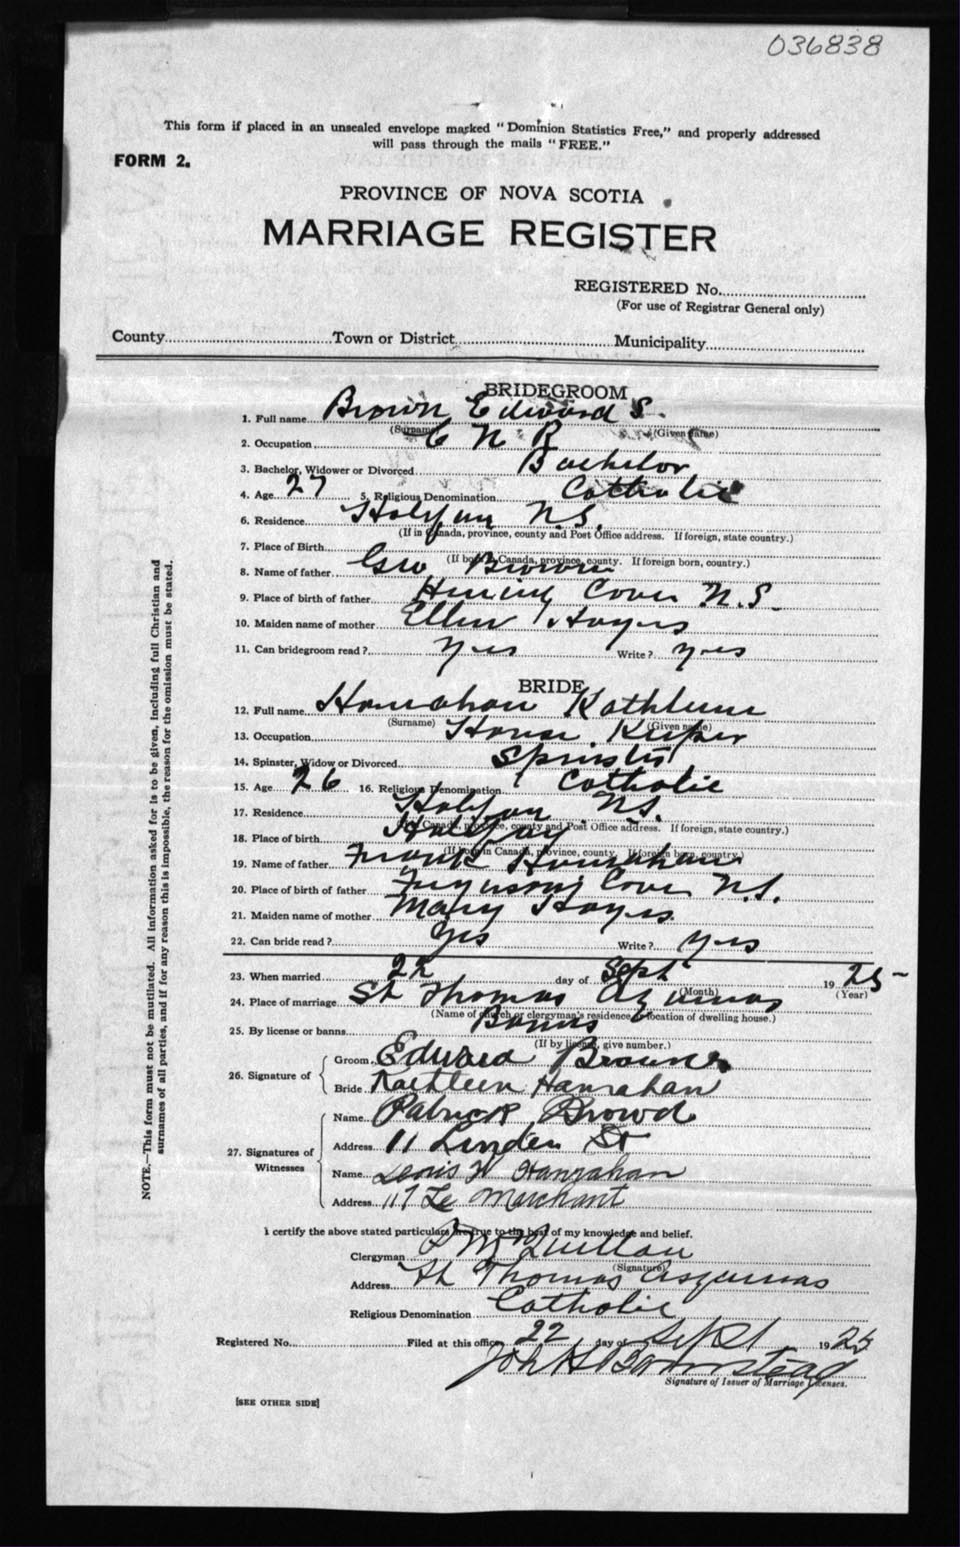 036838
This form if placed in an unsealed envelope marked "Dominion Statistics Free," and properly addressed
will pass through the mails "FREE."
FORM 2.
PROVINCE OF NOVA SCOTIA
MARRIAGE REGISTER
REGISTERED No.
(For use of Registrar General only)
County Town or District Municipality
BRIDEGROOM
1. Full name Brown Edward S.
(Surname) (Given name)
2. Occupation C N R
3. Bachelor, Widower or Divorced Bachelor
4. Age 27 5. Religious Denomination Catholic
6. Residence Halifax N.S.
(If in Canada, province, county and Post Office address. If foreign, state country.)
7. Place of Birth
(If born in Canada, province, county. If foreign born, country.)
8. Name of father Geo Brown
9. Place of birth of father Herring Cove N.S.
10. Maiden name of mother Ellen Hayes
11. Can bridegroom read? Yes Write? yes
BRIDE
12. Full name Hanrahan Kathleen
(Surname) (Given name)
13. Occupation House Keeper
14. Spinster, Widow or Divorced Spinster
15. Age 26 16. Religious Denomination Catholic
17. Residence Halifax N.S.
(If in Canada, province, county and Post Office address. If foreign, state country.)
18. Place of birth Halifax
(If born in Canada, province, county. If foreign born, country.)
19. Name of father Frank Hanrahan
20. Place of birth of father Fergusons Cove N.S.
21. Maiden name of mother Mary Hayes
22. Can bride read? Yes Write? yes
23. When married 22 day of Sept 1925
(Month) (Year)
24. Place of marriage St Thomas Aquinas
(Name of church or clergyman's residence & location of dwelling house.)
25. By license or banns Banns
(If by license, give number.)
26. Signature of Groom Edward Brown
Bride Kathleen Hanrahan
27. Signatures of Witnesses Name Patrick
Address 11 Linden St
Name Hanrahan
Address 117 Le Marchant
I certify the above stated particulars are true to the best of my knowledge and belief.
Clergyman McQuillan
(Signature)
Address St Thomas Aquinas
Religious Denomination Catholic
Registered No. Filed at this office 22 day of Sept 1925
John H Barnstead
Signature of Issuer of Marriage Licenses.
[SEE OTHER SIDE]
NOTE.—This form must not be mutilated. All information asked for is to be given, including full Christian and
surnames of all parties, and if for any reason this is impossible, the reason for the omission must be stated.